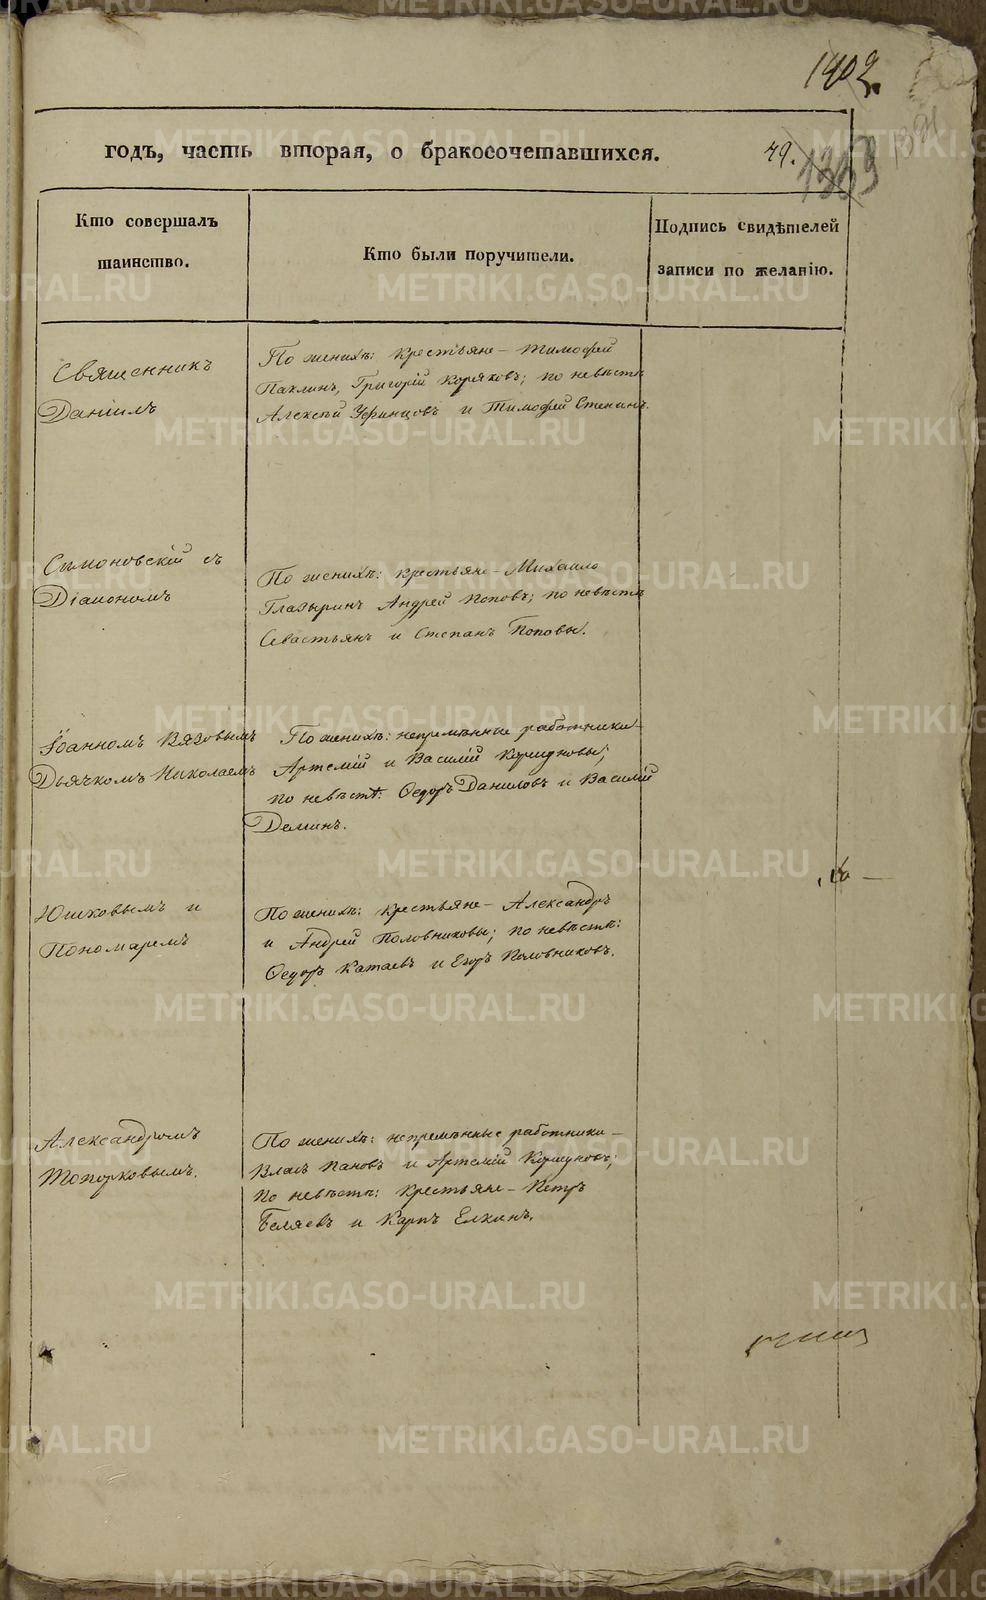 1402.
годъ, часть вторая, о бракосочетавшихся.
49.
1363
Кто совершалъ
таинство.
Кто были поручители.
Подпись свидѣтелей
записи по желанію.
Священникъ
Даніилъ
По женихѣ: крестьяне – Тимофей
Пахлинъ, Григорій Коряковъ; по невѣстѣ
Алексѣй Уфинцовъ и Тимофей Стенинъ.
Симоновскій съ
Діакономъ
По женихѣ: крестьяне – Михаило
Глазыринъ Андрей Поповъ; по невѣстѣ
Севастьянъ и Степанъ Поповы.
Іоанномъ Вязовымъ
Дьячкомъ Николаемъ
По женихѣ: непремѣнные работники –
Артемій и Василій Коршуновы;
по невѣстѣ: Ѳедоръ Даниловъ и Василій
Деминъ.
Юшковымъ и
Пономаремъ
По женихѣ: крестьяне – Александръ
и Андрей Половниковы; по невѣстѣ:
Ѳедоръ Катаевъ и Егоръ Половниковъ.
Александромъ
Топорковымъ.
По женихѣ: непремѣнные работники –
Власъ Пановъ и Артемій Коршуновъ;
по невѣстѣ: крестьяне – Петръ
Беляевъ и Карпъ Елкинъ.
METRIKI.GASO-URAL.RU